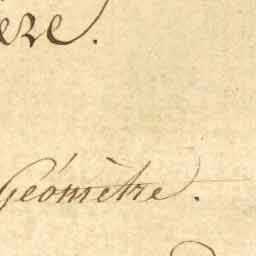 ère.
Géomètre.